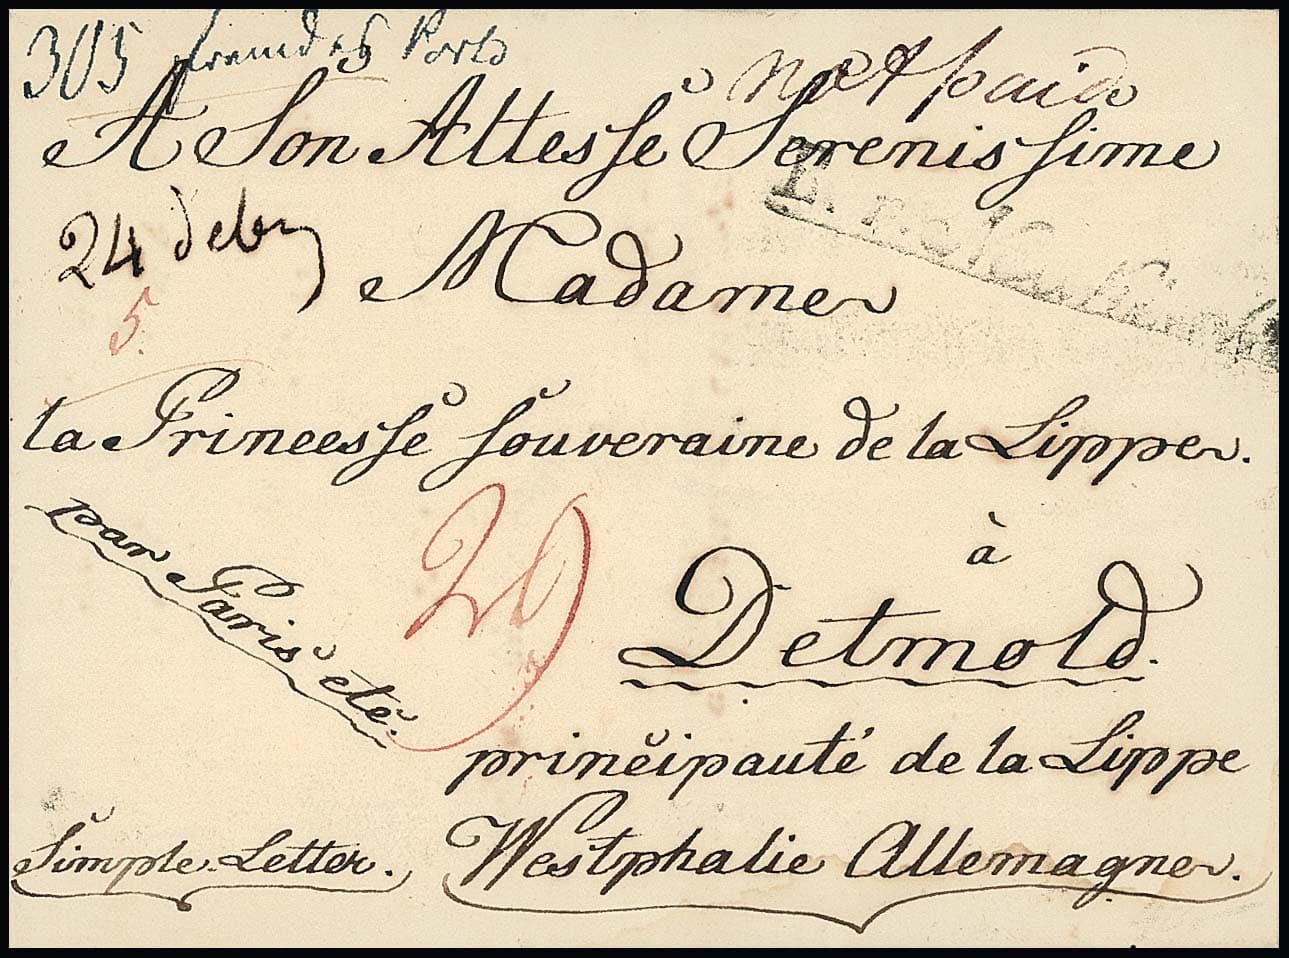 305 fremdes Porto
not paid
A Son Altesse Serenissime
24 debr
Madame
5.
la Princesse souveraine de la Lippe.
par Paris etc.
20
à
Detmold.
principauté de la Lippe
Simple Letter.
Westphalie Allemagne.